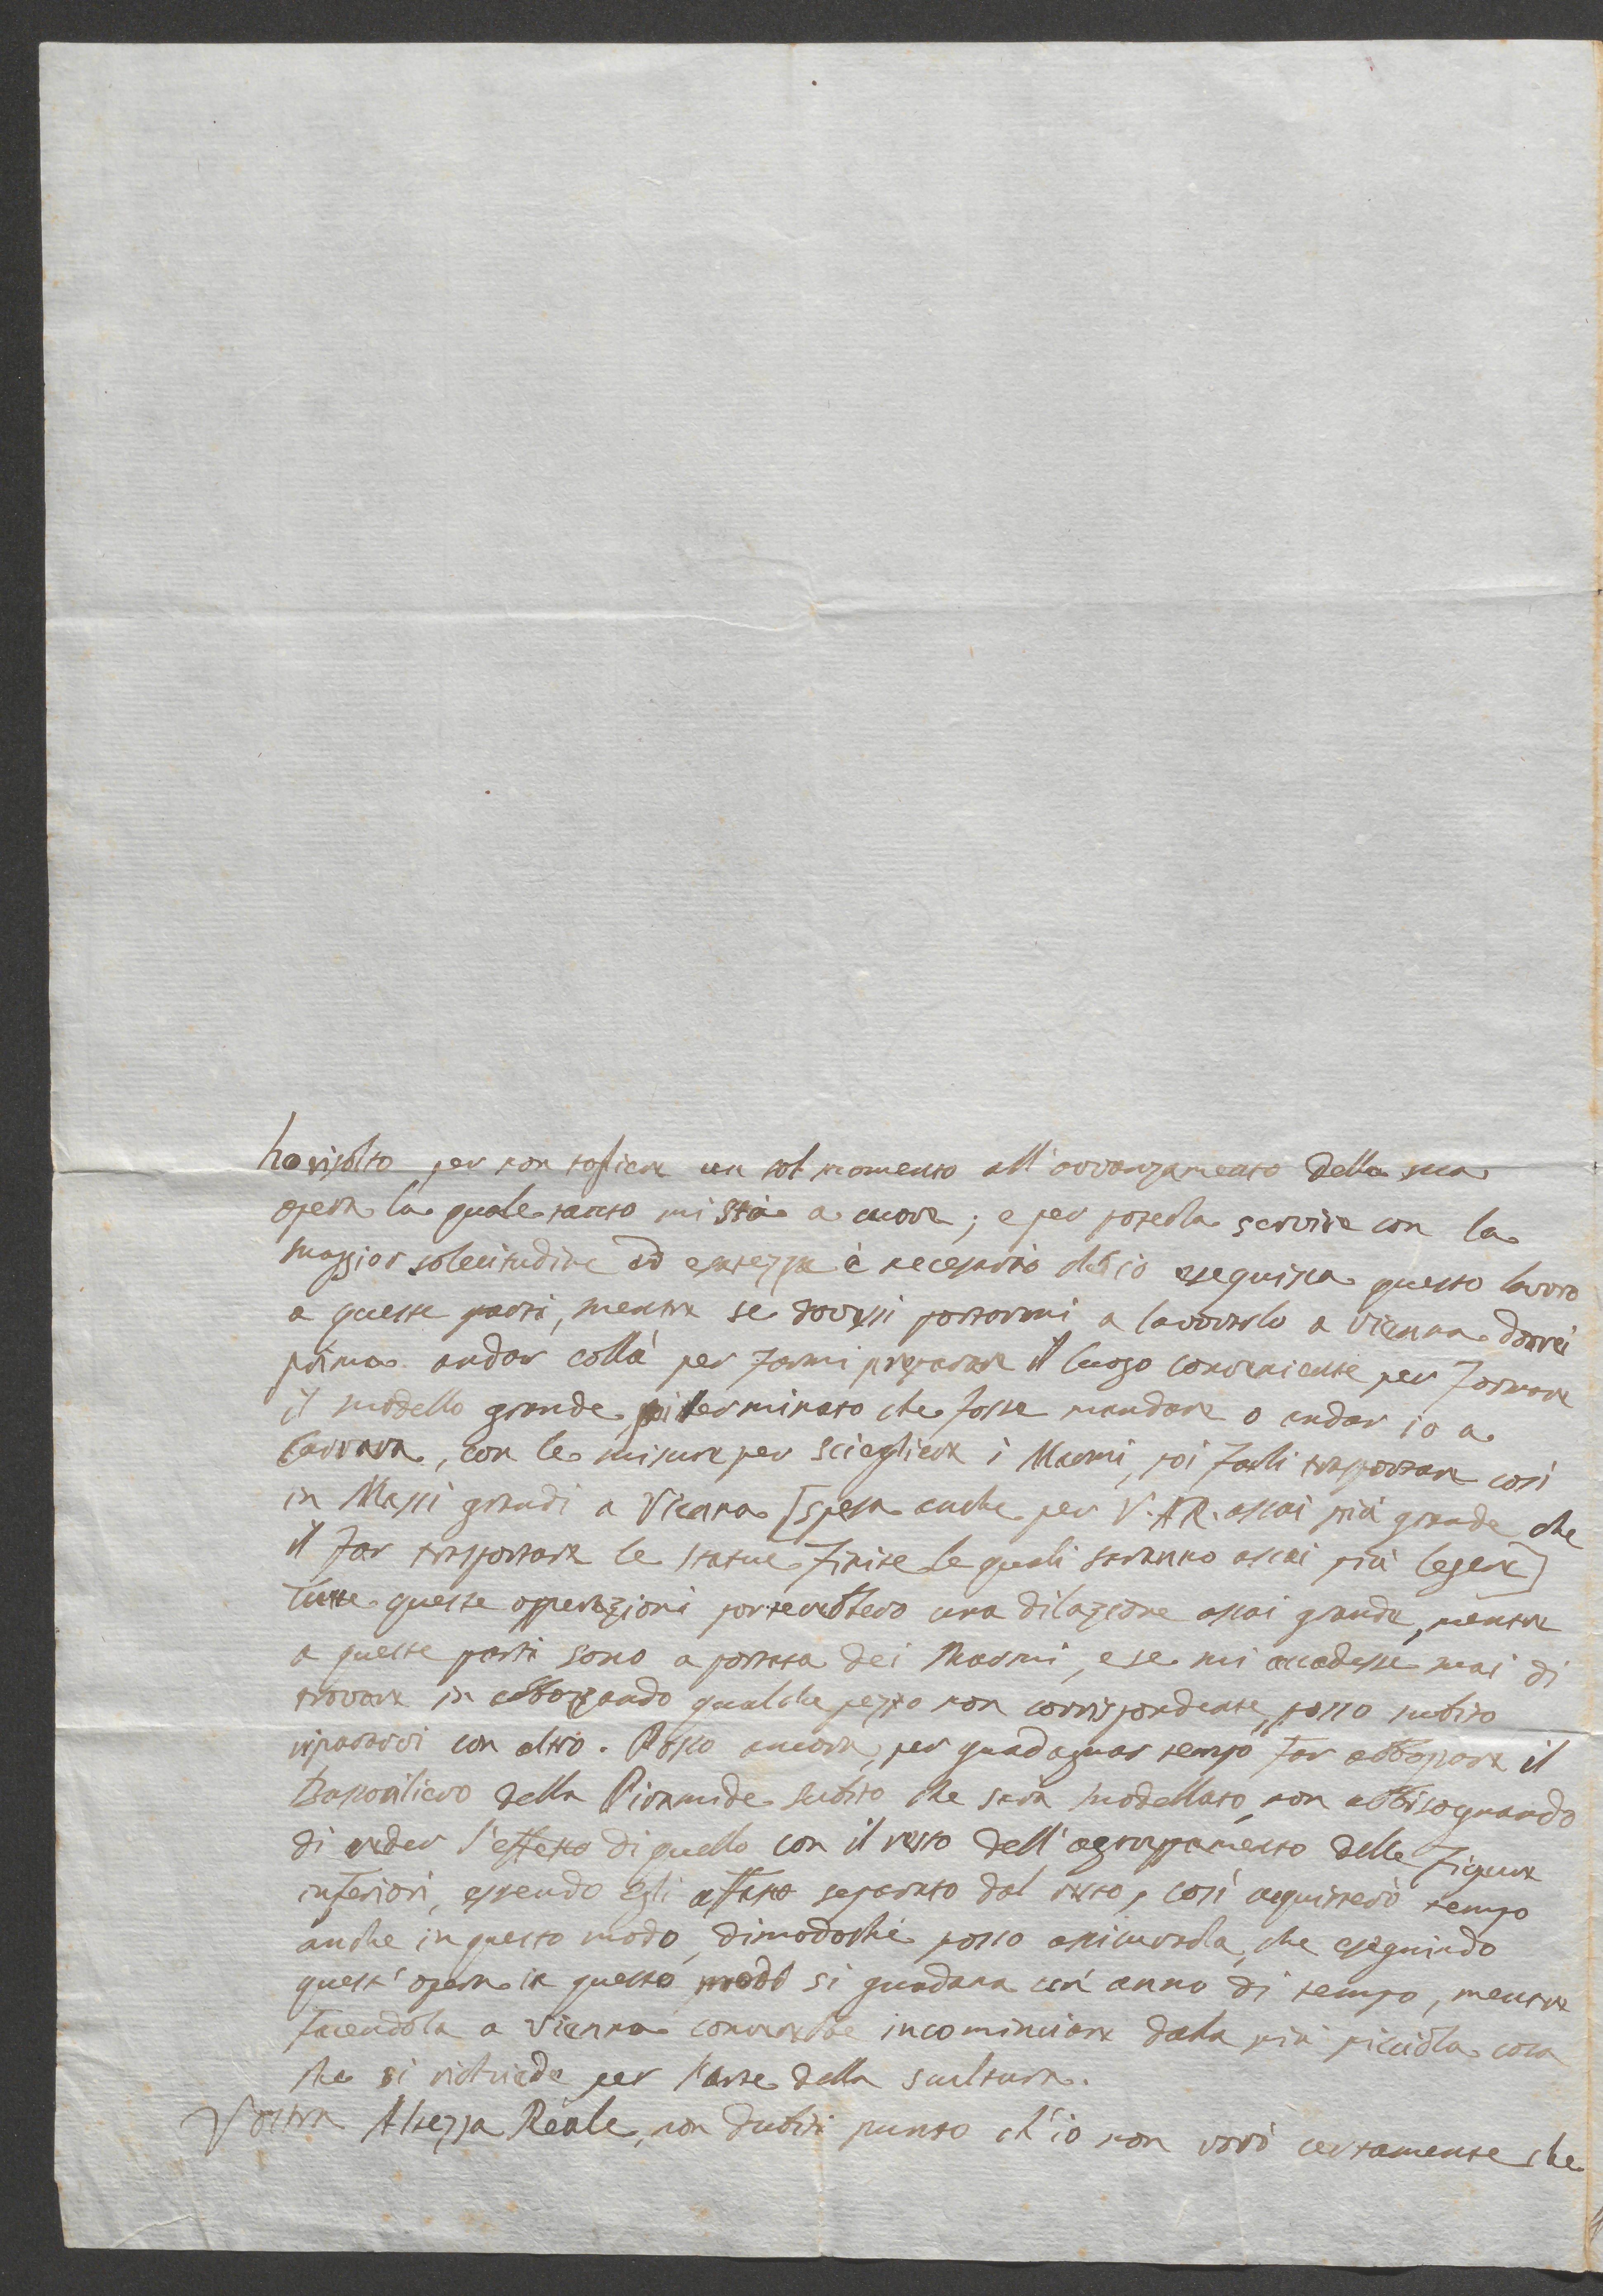 ho risolto per non togliere un sol momento all'avvanzamento della sua
opera la quale tanto mi stà a cuore; e per poterla servire con la
maggior solecitudine ed esatezza è necesario ch'io eseguisca questo lavoro
a queste parti, mentre se dovessi portarmi a lavorarlo a Vienna dovrei
prima andar collà per farmi preparare il luogo conveniente per formare
il modello grande, poi terminato che fosse mandare o andar io a
Carrara, con le misure per sciegliere i Marmi, poi farli trasportare così
in Massi grandi a Vienna [spesa anche per V. A R. assai più grande che
il far trasportare le statue finite le quali saranno assai più legere]
Tutte queste opperazioni porterebbero una dilazione assai grande, mentre
a queste parti sono a portata dei Marmi, e se mi accadesse mai di
trovare in abbozzando qualche pezzo non corrispondente, posso subito
ripararvi con altro. Posso ancora, per guadagnar tempo far abbozzare il
Bassorilievo della Piramide subito che sarà modellato, non abbisognando
di veder l'effetto di quello con il resto dell'agroppamento delle Figure
inferiori, essendo egli affatto separato dal resto, così acquisterò tempo
anche in questo modo, dimodoché posso assicurarla, che eseguindo
quest'opera in questo modo si guadana un anno di tempo, mentre
facendola a Vienna converebbe incominciare dala più picciola cosa
che si richiede per l'arte della scultura.
Vostra Altezza Reale, non dubiti punto ch'io non vorò certamente che